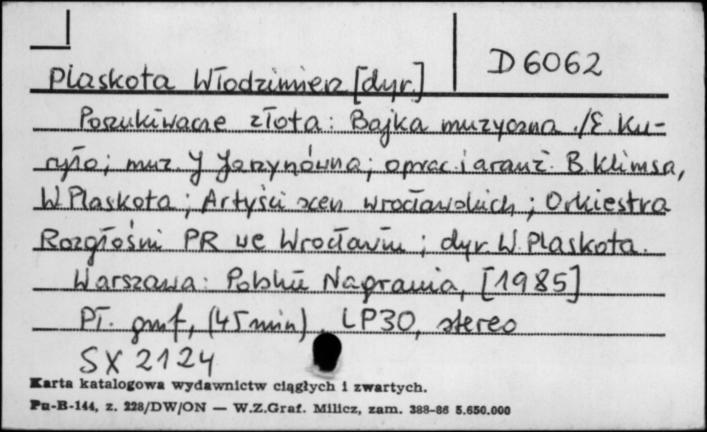 D 6062
Plaskota Włodzimierz [dyr.]
Poszukiwacze złota : Bajka muzyczna / E. Ku-
ryło ; muz. J. Jarzynówna ; oprac. i aranż. B. Klimsa,
W. Plaskota ; Artyści scen wrocławskich ; Orkiestra
Rozgłośni PR we Wrocławiu ; dyr. W. Plaskota.
Warszawa : Polskie Nagrania, [1985]
Pł. gmf, (45 min), LP30, stereo
SX 2124
Karta katalogowa wydawnictw ciągłych i zwartych.
Pu-B-144, z. 228/DW/ON — W.Z.Graf. Milicz, zam. 388-86 5.650.000